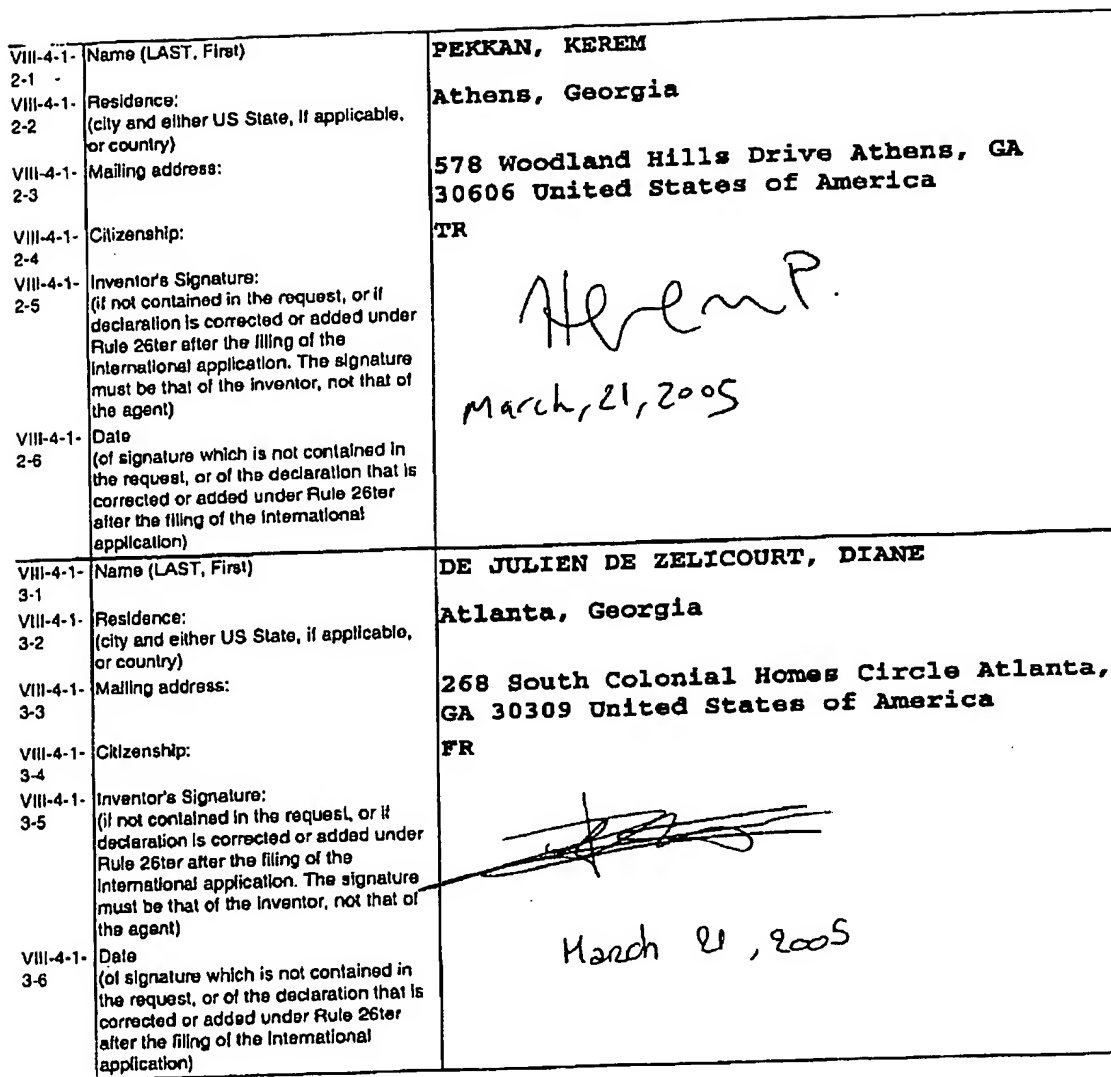 VIII-4-1- Name (LAST, First) PEKKAN, KEREM
2-1 -
VIII-4-1- Residence: Athens, Georgia
2-2 (city and either US State, if applicable,
or country)
VIII-4-1- Mailing address: 578 Woodland Hills Drive Athens, GA
2-3 30606 United States of America
VIII-4-1- Citizenship: TR
2-4
VIII-4-1- Inventor's Signature:
2-5 (if not contained in the request, or if
declaration is corrected or added under
Rule 26ter after the filing of the
international application. The signature
must be that of the inventor, not that of
the agent)
Kerem P.
March, 21, 2005
VIII-4-1- Date
2-6 (of signature which is not contained in
the request, or of the declaration that is
corrected or added under Rule 26ter
after the filing of the international
application)
VIII-4-1- Name (LAST, First) DE JULIEN DE ZELICOURT, DIANE
3-1
VIII-4-1- Residence: Atlanta, Georgia
3-2 (city and either US State, if applicable,
or country)
VIII-4-1- Mailing address: 268 South Colonial Homes Circle Atlanta,
3-3 GA 30309 United States of America
VIII-4-1- Citizenship: FR
3-4
VIII-4-1- Inventor's Signature:
3-5 (if not contained in the request, or if
declaration is corrected or added under
Rule 26ter after the filing of the
international application. The signature
must be that of the inventor, not that of
the agent)
March 21, 2005
VIII-4-1- Date
3-6 (of signature which is not contained in
the request, or of the declaration that is
corrected or added under Rule 26ter
after the filing of the international
application)